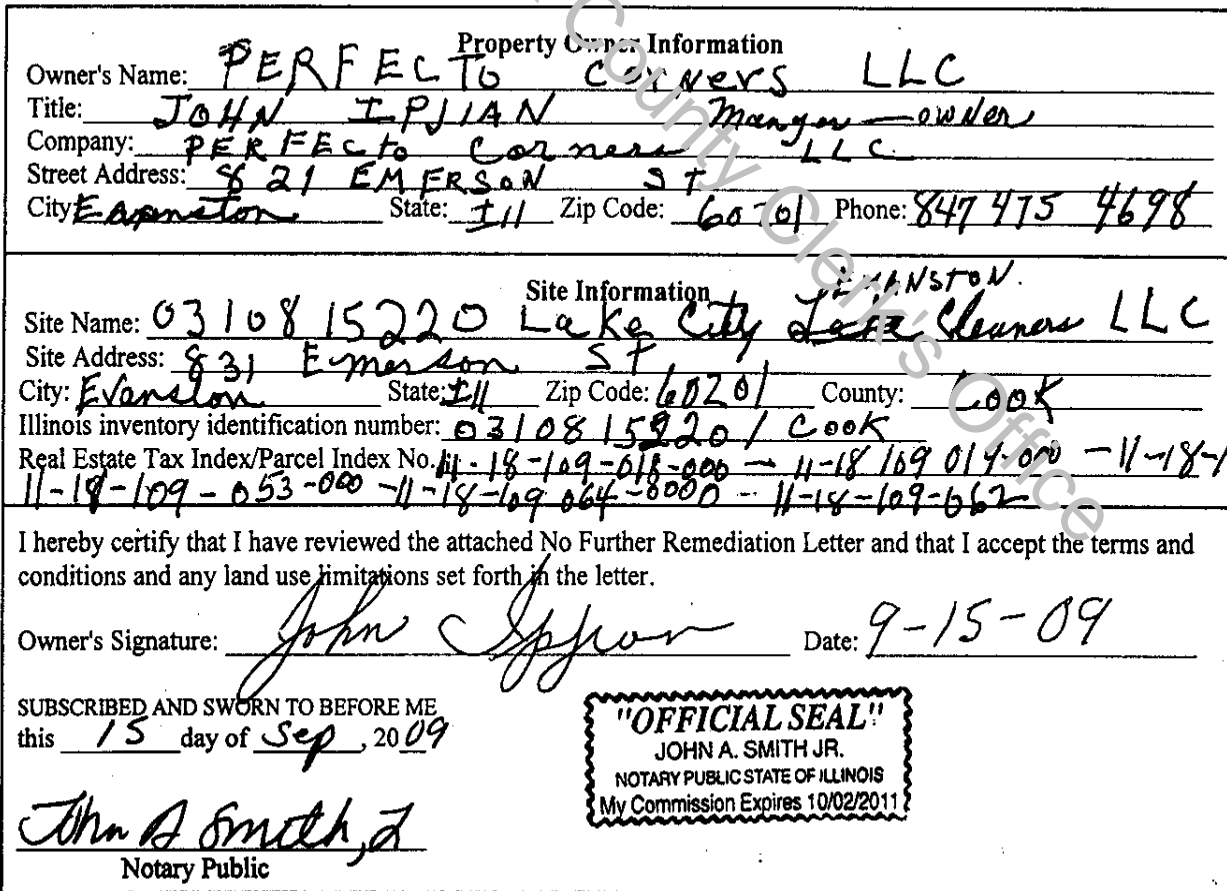 Property Owner Information
Owner's Name: PERFECTO CORNERS LLC
Title: JOHN IPJIAN Manger — owner
Company: PERFECTO Corners LLC
Street Address: 821 EMERSON ST
City State: Ill Zip Code: Phone: 847 475 4698
Site Information EVANSTON.
Site Name: 0310815220 Lake City Cleaners LLC
Site Address: 831 Emerson ST
City: Evanston State: Ill Zip Code: 60201 County: Cook
Illinois inventory identification number: / Cook
Real Estate Tax Index/Parcel Index No. 11-18-109-018-000 — 11-18 109 019-000 — 11-18-1
11-18-109-053-000 - 11-18-109 064-0000 -- 11-18-109-062
I hereby certify that I have reviewed the attached No Further Remediation Letter and that I accept the terms and
conditions and any land use limitations set forth in the letter.
Owner's Signature: John Ipjian Date: 9-15-09
SUBSCRIBED AND SWORN TO BEFORE ME
this 15 day of Sep, 2009
"OFFICIAL SEAL"
JOHN A. SMITH JR.
NOTARY PUBLIC STATE OF ILLINOIS
My Commission Expires 10/02/2011
John A Smith, J
Notary Public
County Clerk's Office